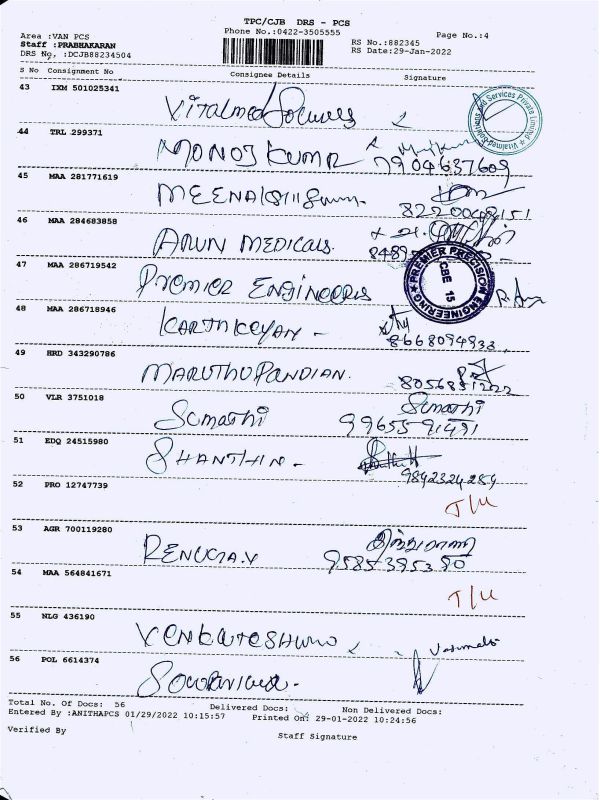 TPC/CJB DRS - PCS
Area :VAN PCS Phone No.:0422-3505555 Page No.:4
Staff :PRABHAKARAN RS No.:882345
DRS No, :DCJB88234504 RS Date:29-Jan-2022
S No Consignment No Consignee Details Signature
43 IXM 501025341
Vitalmed
Vitalmed Solutions and Services Private Limited
44 TRL 299371
MONOJ KUMR 7904637609
45 MAA 281771619
46 MAA 284683858
ARUN MEDICALS.
47 MAA 286719542
PREMIER ENGINEERS
PREMIER PRECISION ENGINEERING
CBE 15
48 MAA 286718946
KARTHIKEYAN -
8668094933
49 HRD 343290786
MARUTHUPANDIAN. 8056881222
50 VLR 3751018
Sumathi Sumathi
51 EDQ 24515980
SHANTHIN -
9842324289
52 PRO 12747739
T/U
53 AGR 700119280
RENUKA.V 9585395390
54 MAA 564841671
T/U
55 NLG 436190
56 POL 6614374
Total No. Of Docs: 56 Delivered Docs: Non Delivered Docs:
Entered By :ANITHAPCS 01/29/2022 10:15:57 Printed On: 29-01-2022 10:24:56
Verified By
Staff Signature